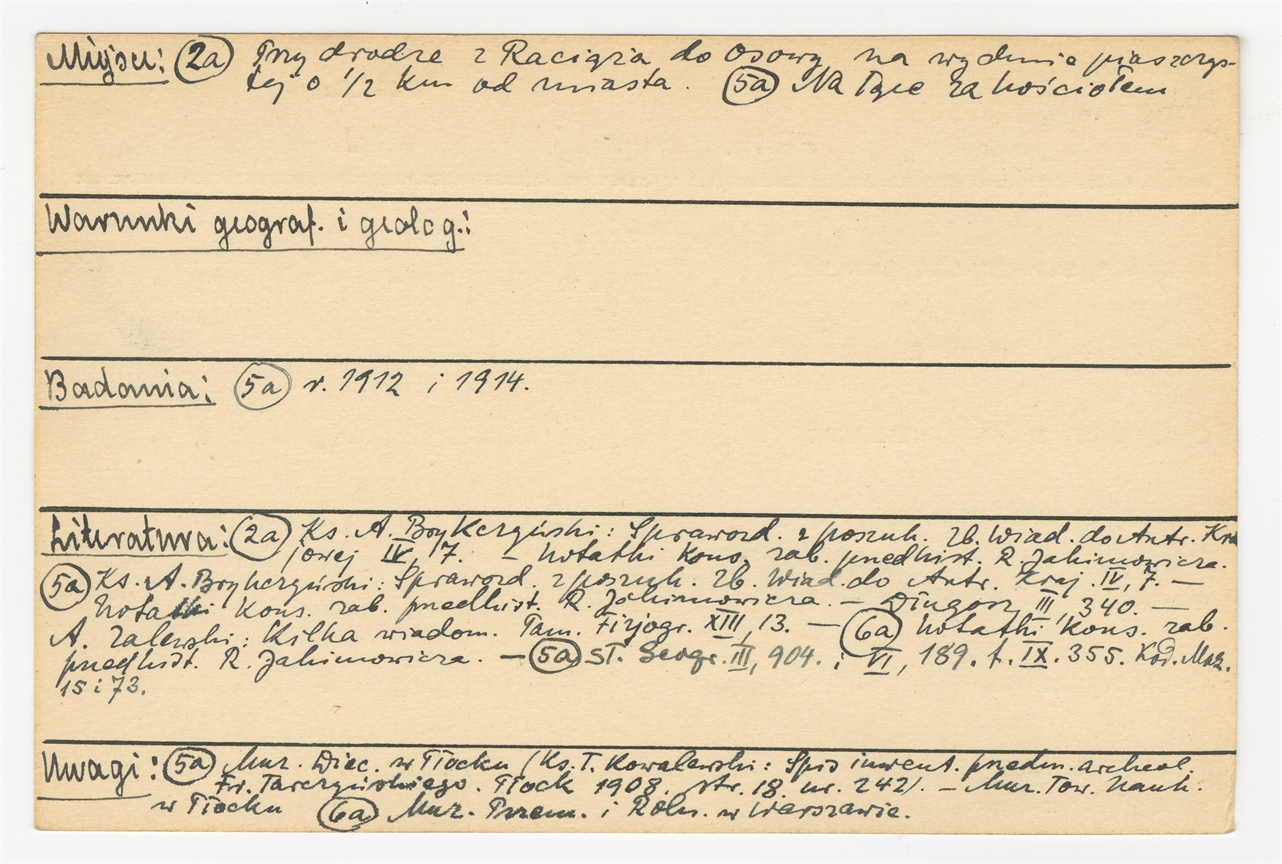 Miejsce: (2a) Przy drodze z Raciąża do Osowy na wydmie piaszczys-
tej o 1/2 Km od miasta. (5a) Na Łyse za kościołem
Warunki geograf. i geolog.:
Badania: (5a) r. 1912 i 1914.
Literatura: (2a) Ks. A. Brykczyński: Sprawozd. z poszuk. Zb. Wiad. do Antr. Kra
jowej IV, 7. — Notatki Kons. zab. przedhist. R. Jakimowicza.
(5a) Ks. A. Brykczyński: Sprawozd. z poszuk. Zb. Wiad. do Antr. Kraj. IV, 7. —
Notatki Kons. zab. przedhist. R. Jakimowicza. — Długosz III 340. —
A. Zalewski: Kilka wiadom. Pam. Fizjogr. XIII, 13. — (6a) Notatki Kons. zab.
przedhist. R. Jakimowicza. — (5a) Sł. Geogr. III, 904. i VI, 189. t. IX. 355. Kod. Maz.
15 i 73.
Uwagi: (5a) Muz. Diec. w Płocku (Ks. T. Kowalewski: Spis inwent. przedm. archeol.
Fr. Tarczyńskiego. Płock 1908. str. 18. nr. 242/. — Muz. Tow. Nauk.
w Płocku (6a) Muz. Przem. i Roln. w Warszawie.